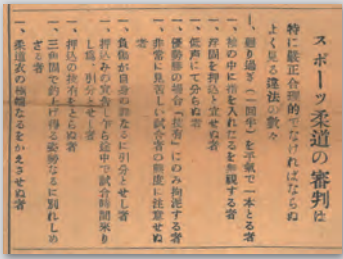 スポーツ柔道の審判は
特に厳正合理的でなければならぬ
よく見る違法の數々
一、廻り過ぎ(一回半)を平氣で一本とる者
一、袖の中に指を入れたるを無視する者
一、岸固を押込と宣せぬ者
一、低声にて分らぬ者
一、優勢勝の場合「技有」にのみ拘泥する者
一、非常に見苦しい試合者の態度に注意せぬ
者
一、負傷が自身の為なるに引分とせし者
一、押込みの宣告し乍ら途中で試合時間來り
し為、引分とせし者
一、押込の技有をとらぬ者
一、三角固で釣上げ得る姿勢なるに別れしめ
ざる者
一、柔道衣の極端なるをかえさせぬ者